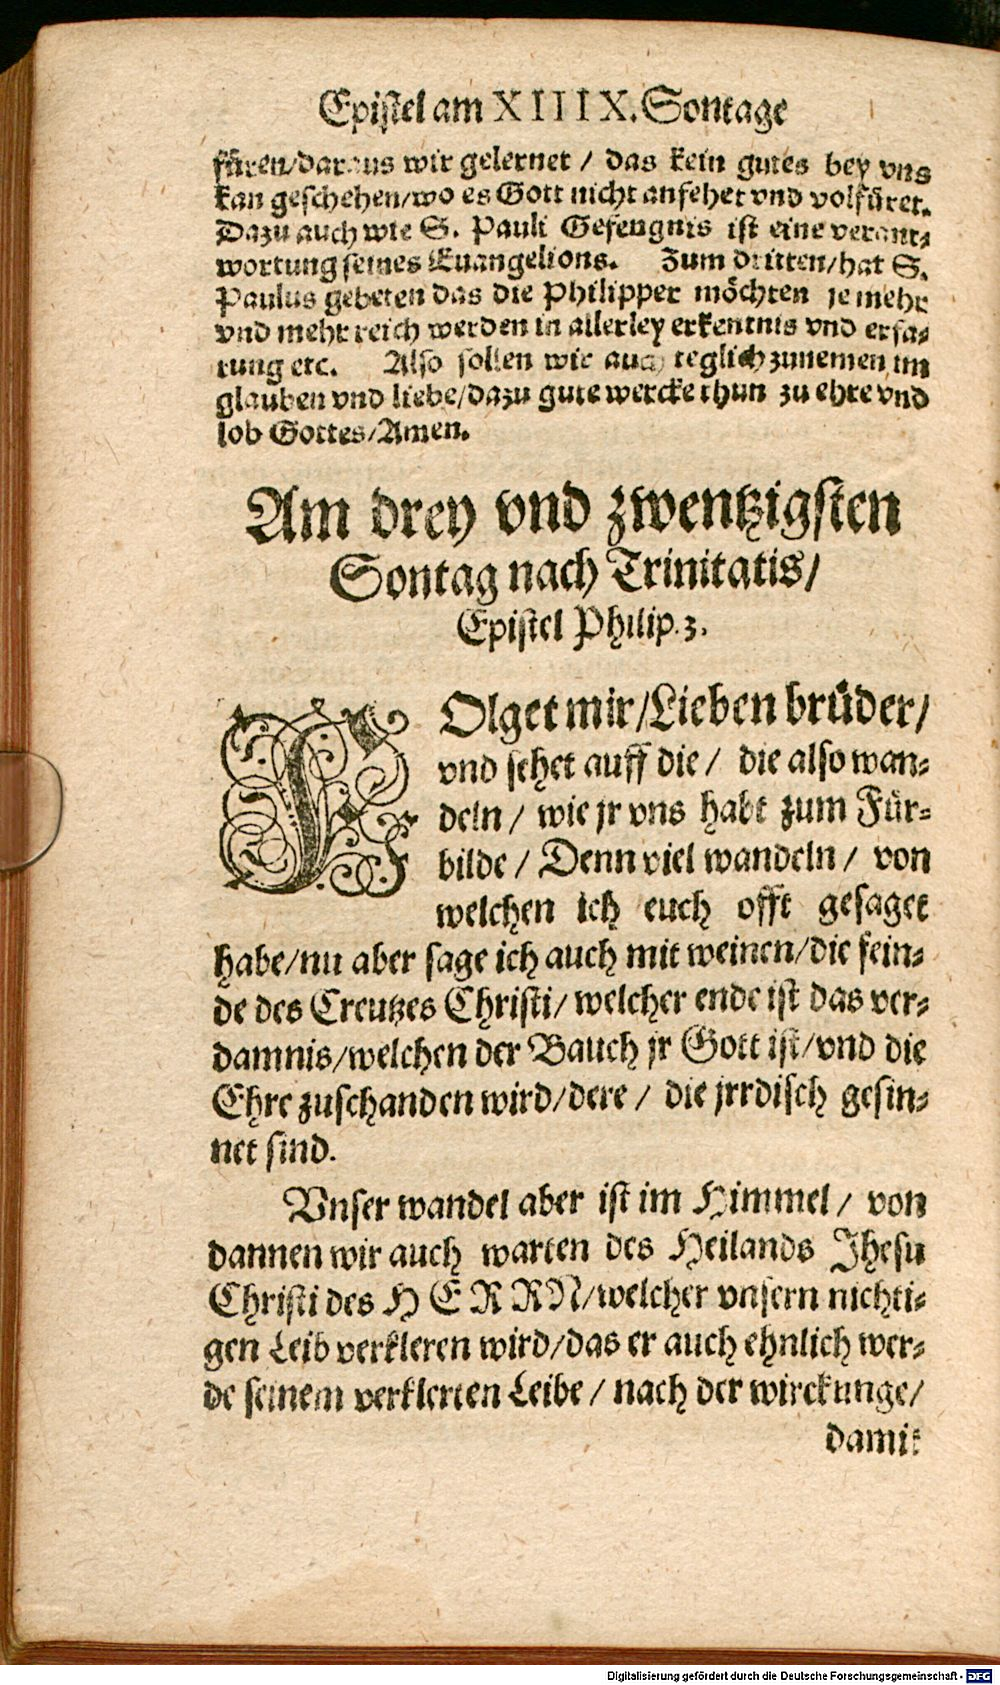 Epistel am XIIIX. Sontage
füren/daraus wir gelernet / das kein gutes bey vns
kan geschehen/wo es Gott nicht anfehet vnd volfüret.
Dazu auch wie S. Pauli Gefengnis ist eine verant⸗
wortung seines Euangelions. Zum dritten/hat S.
Paulus gebeten das die Philipper möchten je mehr
vnd mehr reich werden in allerley erkentnis vnd erfa⸗
rung etc. Also sollen wir auch teglich zunemen im
glauben vnd liebe/dazu gute wercke thun zu ehre vnd
lob Gottes/Amen.
Am drey vnd zwentzigsten
Sontag nach Trinitatis/
Epistel Philip. 3.
FOlget mir/Lieben brüder/
vnd sehet auff die / die also wan⸗
deln / wie jr vns habt zum Für⸗
bilde / Denn viel wandeln / von
welchen ich euch offt gesaget
habe/nu aber sage ich auch mit weinen/die fein⸗
de des Creutzes Christi/ welcher ende ist das ver⸗
damnis/welchen der Bauch jr Gott ist/vnd die
Ehre zuschanden wird/dere / die jrrdisch gesin⸗
net sind.
Vnser wandel aber ist im Himmel / von
dannen wir auch warten des Heilands Jhesu
Christi des HERRN/welcher vnsern nichti⸗
gen Leib verkleren wird/das er auch ehnlich wer⸗
de seinem verklerten Leibe / nach der wirckunge/
damit
Digitalisierung gefördert durch die Deutsche Forschungsgemeinschaft - DFG